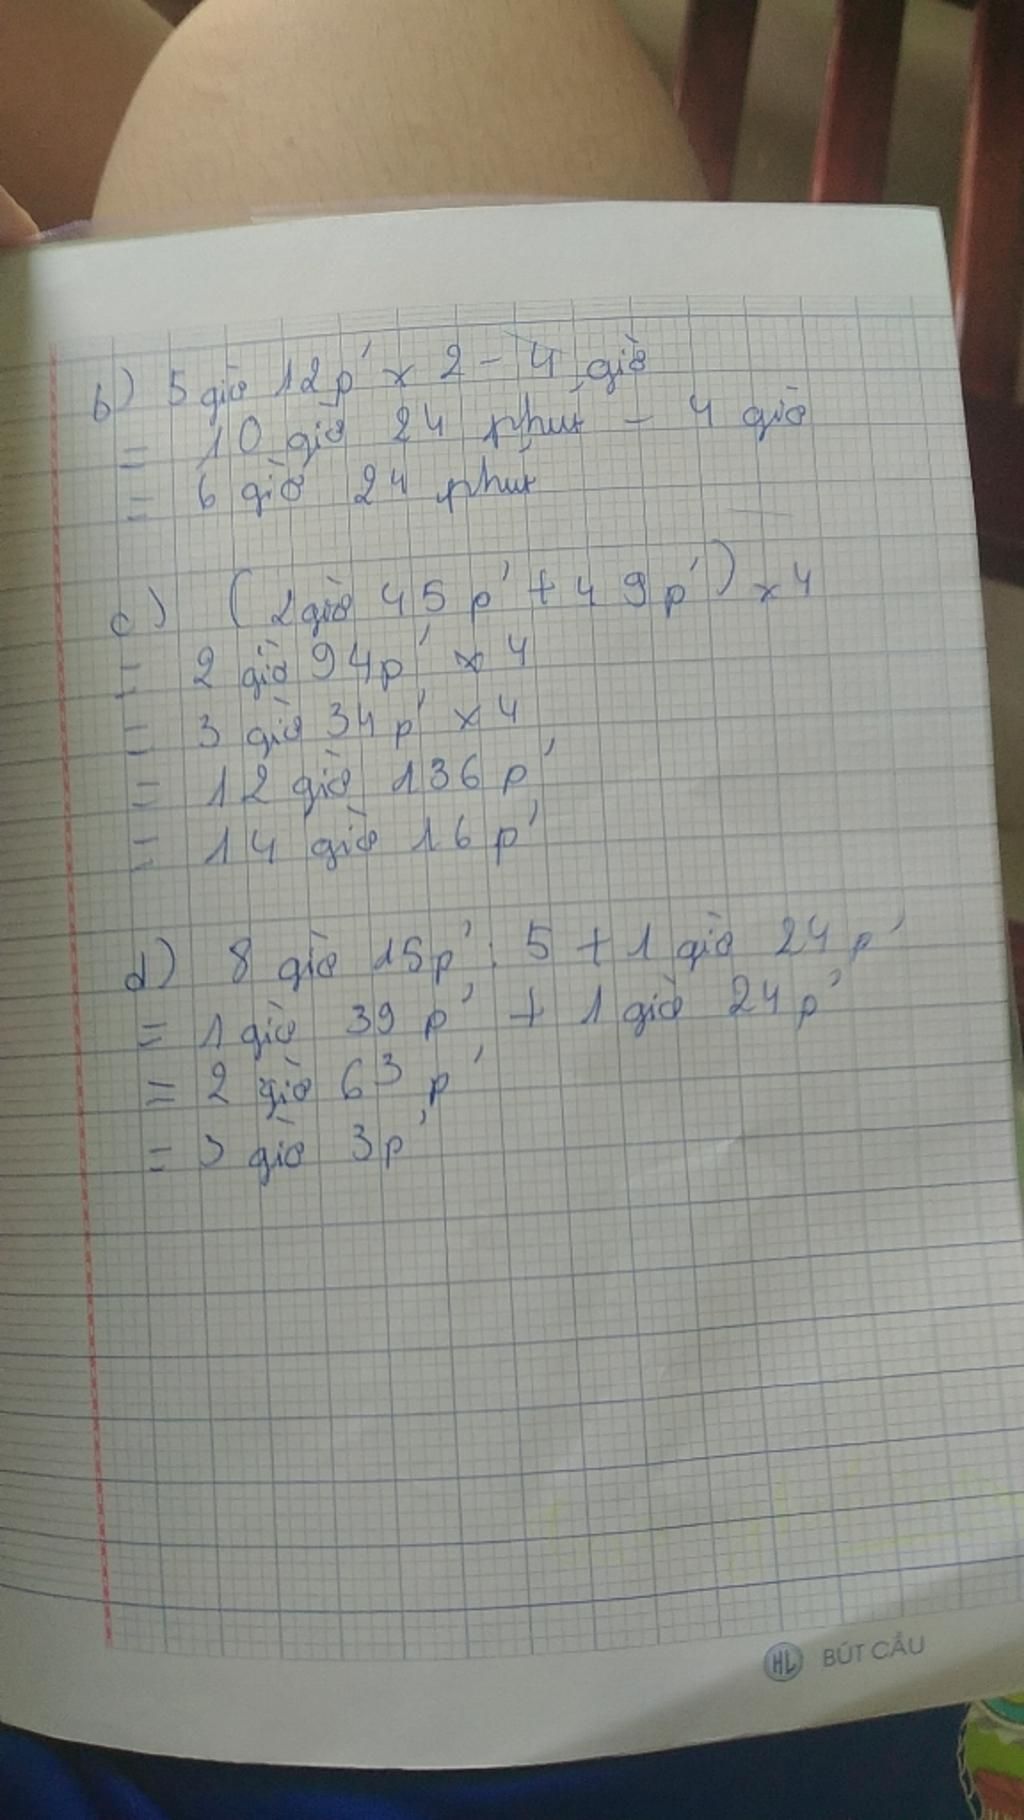 b) 5 giờ 12p' x 2 - 4 giờ
= 10 giờ 24 phút - 4 giờ
= 6 giờ 24 phút
c) (2 giờ 45 p' + 49p') x 4
= 2 giờ 94p' x 4
= 3 giờ 34 p' x 4
= 12 giờ 136 p'
= 14 giờ 16 p'
d) 8 giờ 15p' : 5 + 1 giờ 24 p'
= 1 giờ 39 p' + 1 giờ 24p'
= 2 giờ 63 p'
= 3 giờ 3p'
HL BÚT CẦU